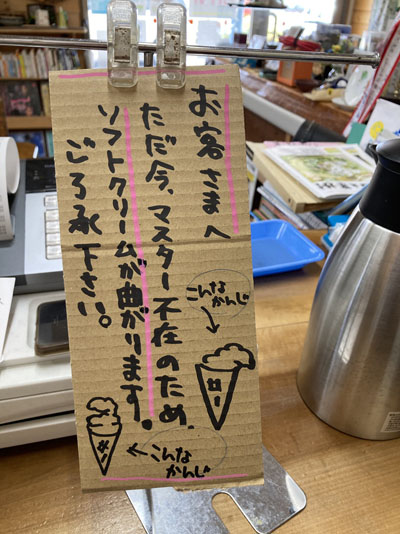 お客さまへ
ただ今、マスター不在のため、
ソフトクリームが曲がります。
ごろ承下さい。
こんな
かんじ
こんな
かんじ